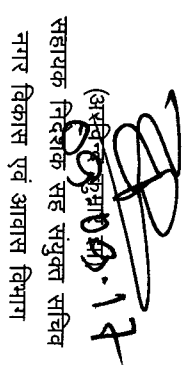 (अरविन्द कुमार झा)
05.05.17
सहायक निदेशक सह संयुक्त सचिव
नगर विकास एवं आवास विभाग